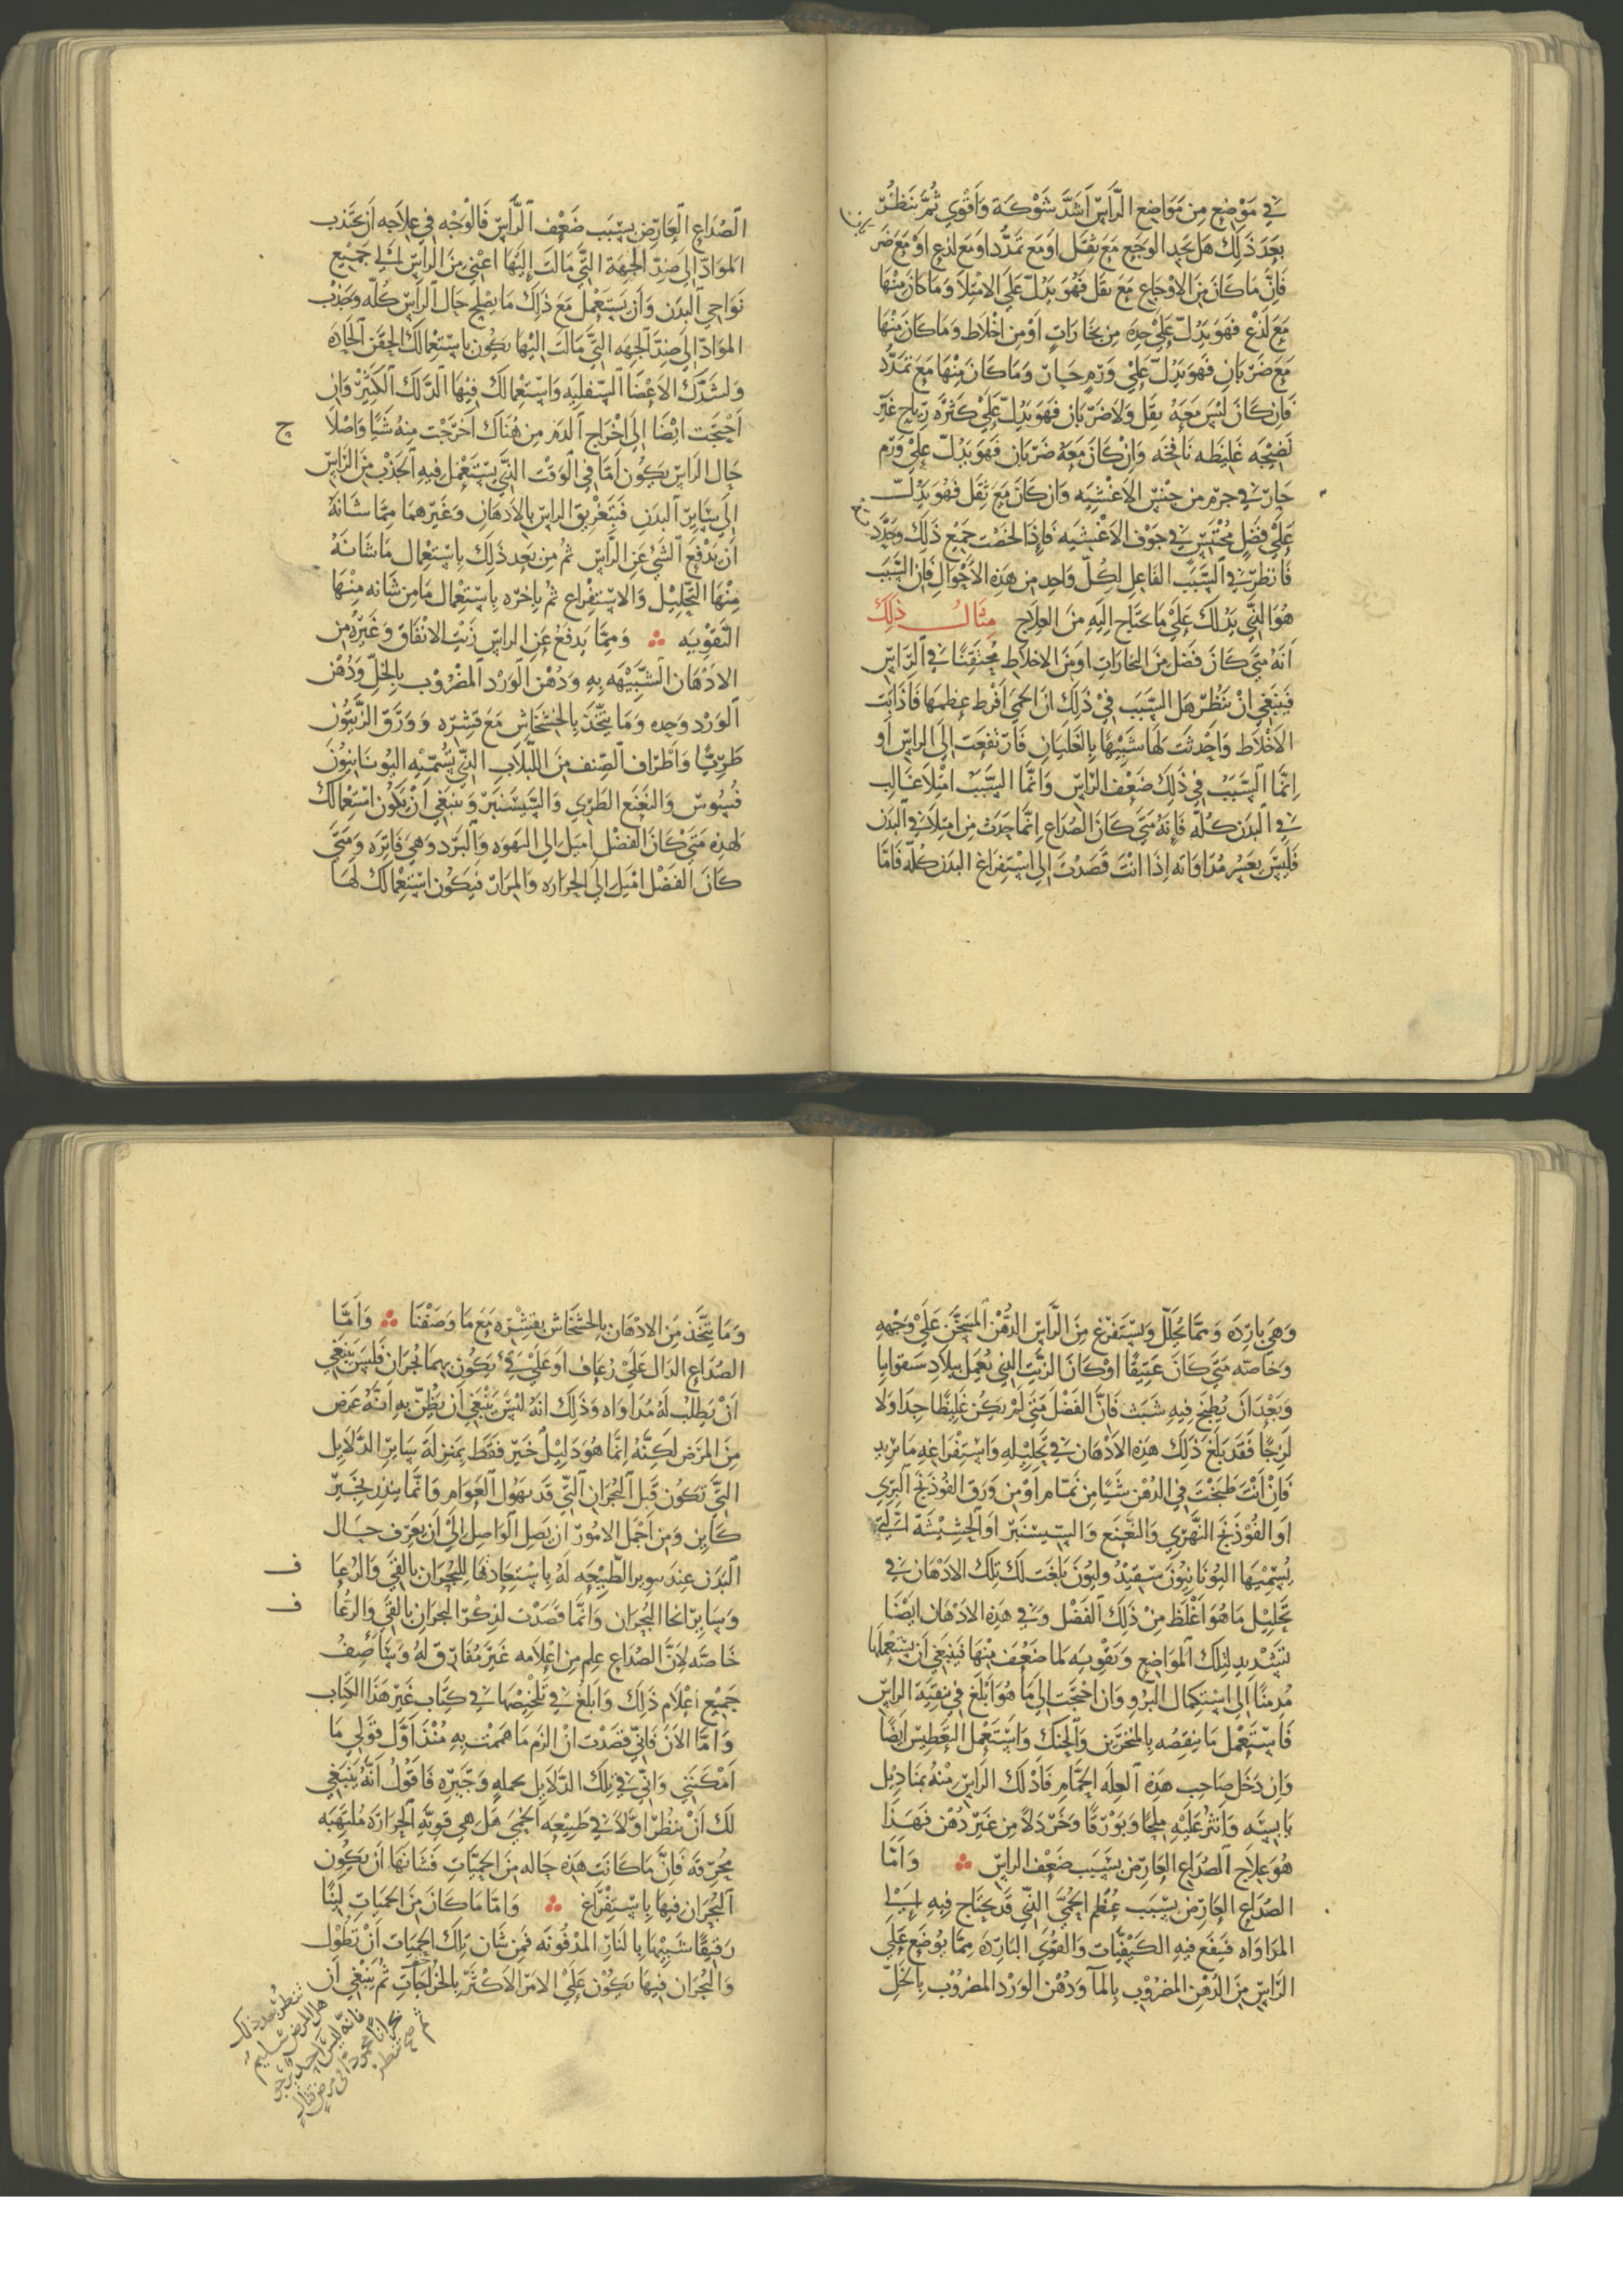 في موضع من مواضع الراس اشد شوكة واقوي ثم تنظر
بعد ذلك هل تجد الوجع مع ثقل او مع تمدد او مع لذع او مع ضر
بان
فان ما كان من الاوجاع مع ثقل فهو يدل علي الامتلا وما كان منها
مع لذع فهو يدل علي حدة من بخارات او من اخلاط وما كان منها
مع ضربان فهو يدل علي ورم حار وما كان منها مع تمدد
فان كان ليس معه ثقل ولا ضربان فهو يدل علي كثرة رياح غير
نضيجه غليظه نافخه وان كان معه ضربان فهو يدل علي ورم
حار في جرم من جنس الاغشيه وان كان مع ثقل فهو يدل
علي فضل محتبس في جوف الاغشيه فاذا لخصت جميع ذلك وحدد
فانظر في السبب الفاعل لكل واحد من هذه الاحوال فان السبب
هو الذي يدلك علي ما تحتاج اليه من العلاج مثال ذلك
انه متي كان فضل من البخارات او من الاخلاط محتقنا في الراس
فينبغي ان تنظر هل السبب في ذلك ان الحمي افرط عظمها فاذابت
الاخلاط واحدثت لها شبيها بالغليان فارتفعت الي الراس او
انما السبب في ذلك ضعف الراس وانما السبب امتلا غالب
في البدن كله فانه متي كان الصداع انما حدث من امتلا في البدن
فليس يعسر مداواته اذا انت قصدت الي استفراغ البدن كله فاما
الصداع العارض بسبب ضعف الراس فالوجه في علاجه ان تجذب
المواد الي ضد الجهة التي مالت إليها اعني من الراس الي جميع
نواحي البدن وان تستعمل مع ذلك ما يصلح حال الراس كله وجذب
المواد الي ضد الجهه التي مالت اليها يكون باستعمالك الحقن الحاده
ولشدك الاعضا السفليه واستعمالك فيها الدلك الكثير وان
احتجت ايضا الي اخراج الدم من هناك اخرجت منه شيا واصلا
ح
حال الراس يكون اما في الوقت الذي يستعمل فيه الجذب من الراس
الي ساير البدن فبتغريق الراس بالادهان وغيرهما مما شانه
ان يدفع الشي عن الراس ثم من بعد ذلك باستعمال ما شانه
منها التحليل والاستفراغ ثم باخره باستعمال ما من شانه منها
التقويه ومما يدفع عن الراس زيت الانفاق وغيره من
الادهان الشبيهه به ودهن الورد المضروب بالخل ودهن
الورد وحده وما يتخذ بالخشخاش مع قشره وورق الزيتون
طريا واطراف الصنف من اللبلاب الذي يسميه اليونانيون
قسوس والنعنع الطري والسيسنبر وينبغي ان يكون استعمالك
لهذه متي كان الفضل اميل الي النهوه والبرد وهي فاتره ومتي
كان الفضل اميل الي الحراره والمرار فيكون استعمالك لها
وهي بارده ومما يحلل ويستفرغ من الراس الدهن المسخن علي وجهه
وخاصه متي كان عتيقا او كان الزيت الذي يعمل ببلاد سقوانيا
وبعد ان يطبخ فيه شبث فان الفضل متي لم يكن غليظا جدا ولا
لزجا فقد يبلغ ذلك هذه الادهان في تحليله واستفراغه ما تريد
فان انت طبخت في الدهن شيا من نمام او من ورق الفوذنج البري
او الفوذنج النهري والنعنع والسيسنبر او الحشيشة التي
يسميها اليونانيون سفنديوليون بلغت لك تلك الادهان في
تحليل ما هو اغلظ من ذلك الفضل وفي هذه الادهان ايضا
تشديد لتلك المواضع وتقويه لما ضعف منها فينبغي ان تستعملها
مدمنا الي استكمال البرو وان احتجت الي ما هو ابلغ في تنقية الراس
فاستعمل ما تنقصه بالمنخرين والحنك واستعمل التعطيس ايضا
وان دخل صاحب هذه العله الحمام فادلك الراس منه بمناديل
يابسه وانثر عليه ملحا وبورقا وخردلا من غير دهن فهذا
هو علاج الصداع العارض بسبب ضعف الراس واما
الصداع العارض بسبب عظم الحمي الذي قد يحتاج فيه الي
المداواه فينفع فيه الكيفيات والقوي البارده مما يوضع علي
الراس من الدهن المضروب بالما ودهن الورد المضروب بالخل
وما يتخذ من الادهان بالخشخاش بقشره مع ما وصفنا واما
الصداع الدال علي رعاف او علي قي يكون بهما البحران فليس ينبغي
ان يطلب له مداواه وذلك انه ليس ينبغي ان يظن به انه عرض
من المرض لكنه انما هو دليل خير فقط بمنزلة ساير الدلايل
التي تكون قبل البحران التي قد تهول العوام وانما ينذر بخير
كاين ومن اجمل الامور ان يصل الواصل الي ان يعرف حال
البدن عند الطبيعه له باستعدادها للبحران بالقي والرعا
ف
وساير انحا البحران وانما قصدت لذكر البحران بالقي والرعا
ف
خاصه لان الصداع علم من اعلامه غير مفارق له وساصف
جميع اعلام ذلك وابلغ في تلخيصها في كتاب غير هذا الكتاب
واما الان فاني قصدت ان الزم ما هممت به منذ اول قولي ما
امكنني واتي في تلك الدلايل بجمله وجيزه فاقول انه ينبغي
لك ان تنظر اولا في طبيعه الحمي هل هي قويه الحرارة ملتهبه
محرقه فان ما كانت هذه حاله من الحميات فشانها ان يكون
البحران فيها باستفراغ واما ما كان من الحميات لينا
رقيقا شبيها بالنار المدفونه فمن شان تلك الحميات ان تطول
والبحران فيها يكون علي الامر الاكثر بالخراجات ثم ينبغي ان
تنظر بعد ذلك
هل المرض سليم
فانه ليس احد يرجو
بحرانا محمودا في مرض قتال
ثم تنظر
صح